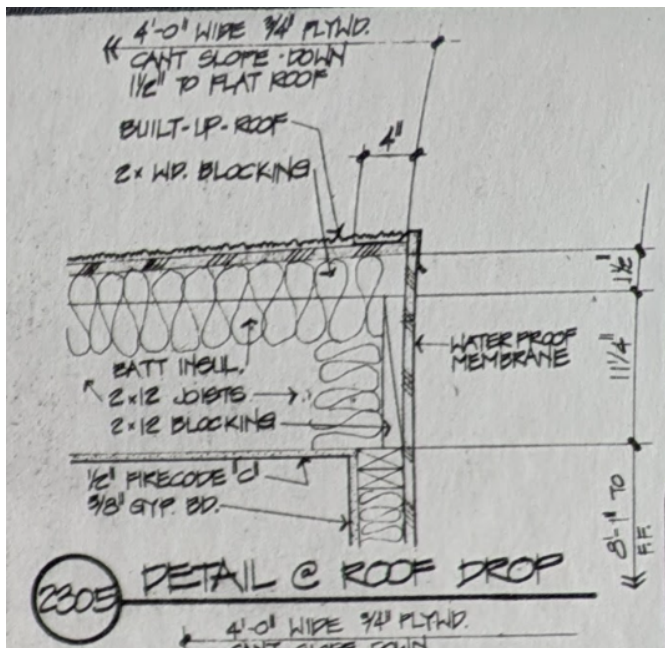 4'-0" WIDE 3/4" PLYWD.
CANT SLOPE DOWN
1 1/2" TO FLAT ROOF
BUILT-UP-ROOF
4"
2x WD. BLOCKING
1 1/2"
WATER PROOF
MEMBRANE
11 1/4"
BATT INSUL.
2x12 JOISTS
2x12 BLOCKING
1/2" FIRECODE "C"
3/8" GYP. BD.
8'-1" TO
F.F.
2305 DETAIL @ ROOF DROP
4'-0" WIDE 3/4" PLYWD.
CANT SLOPE DOWN